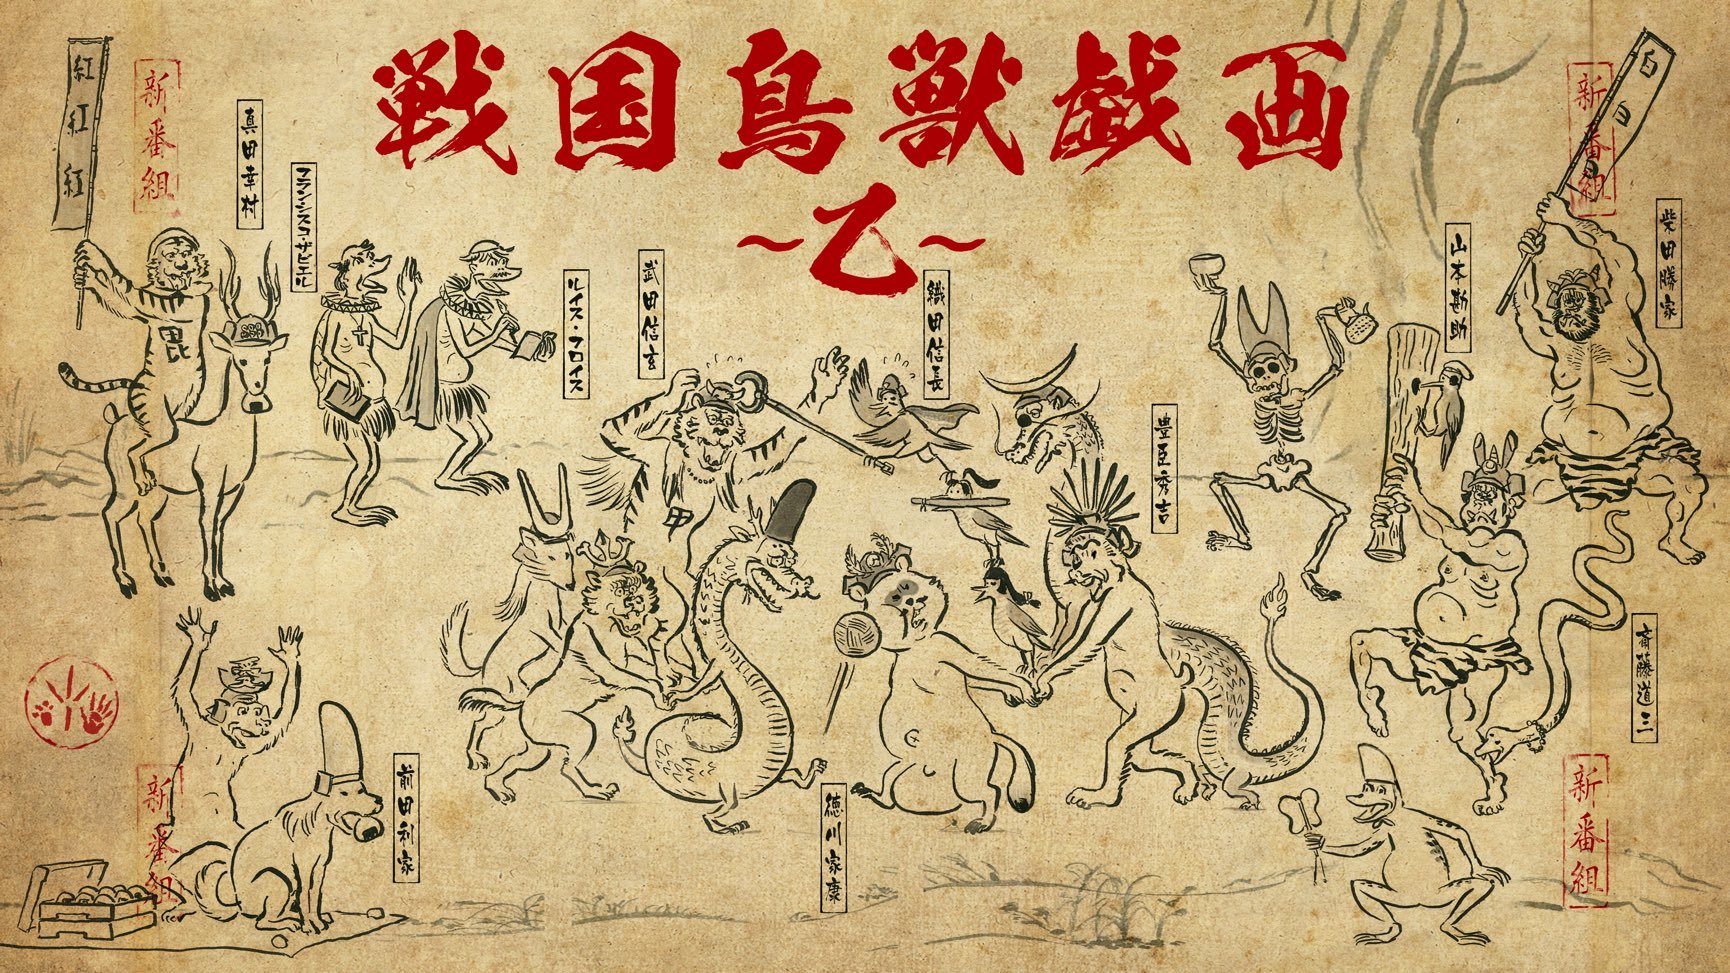 戦国鳥獣戯画
~乙~
紅
紅
紅
新番組
真田幸村
フランシスコ・ザビエル
ルイス・フロイス
武田信玄
織田信長
豊臣秀吉
山本勘助
新番組
白
白
柴田勝家
毘
斎藤道三
前田利家
徳川家康
新番組
新番組